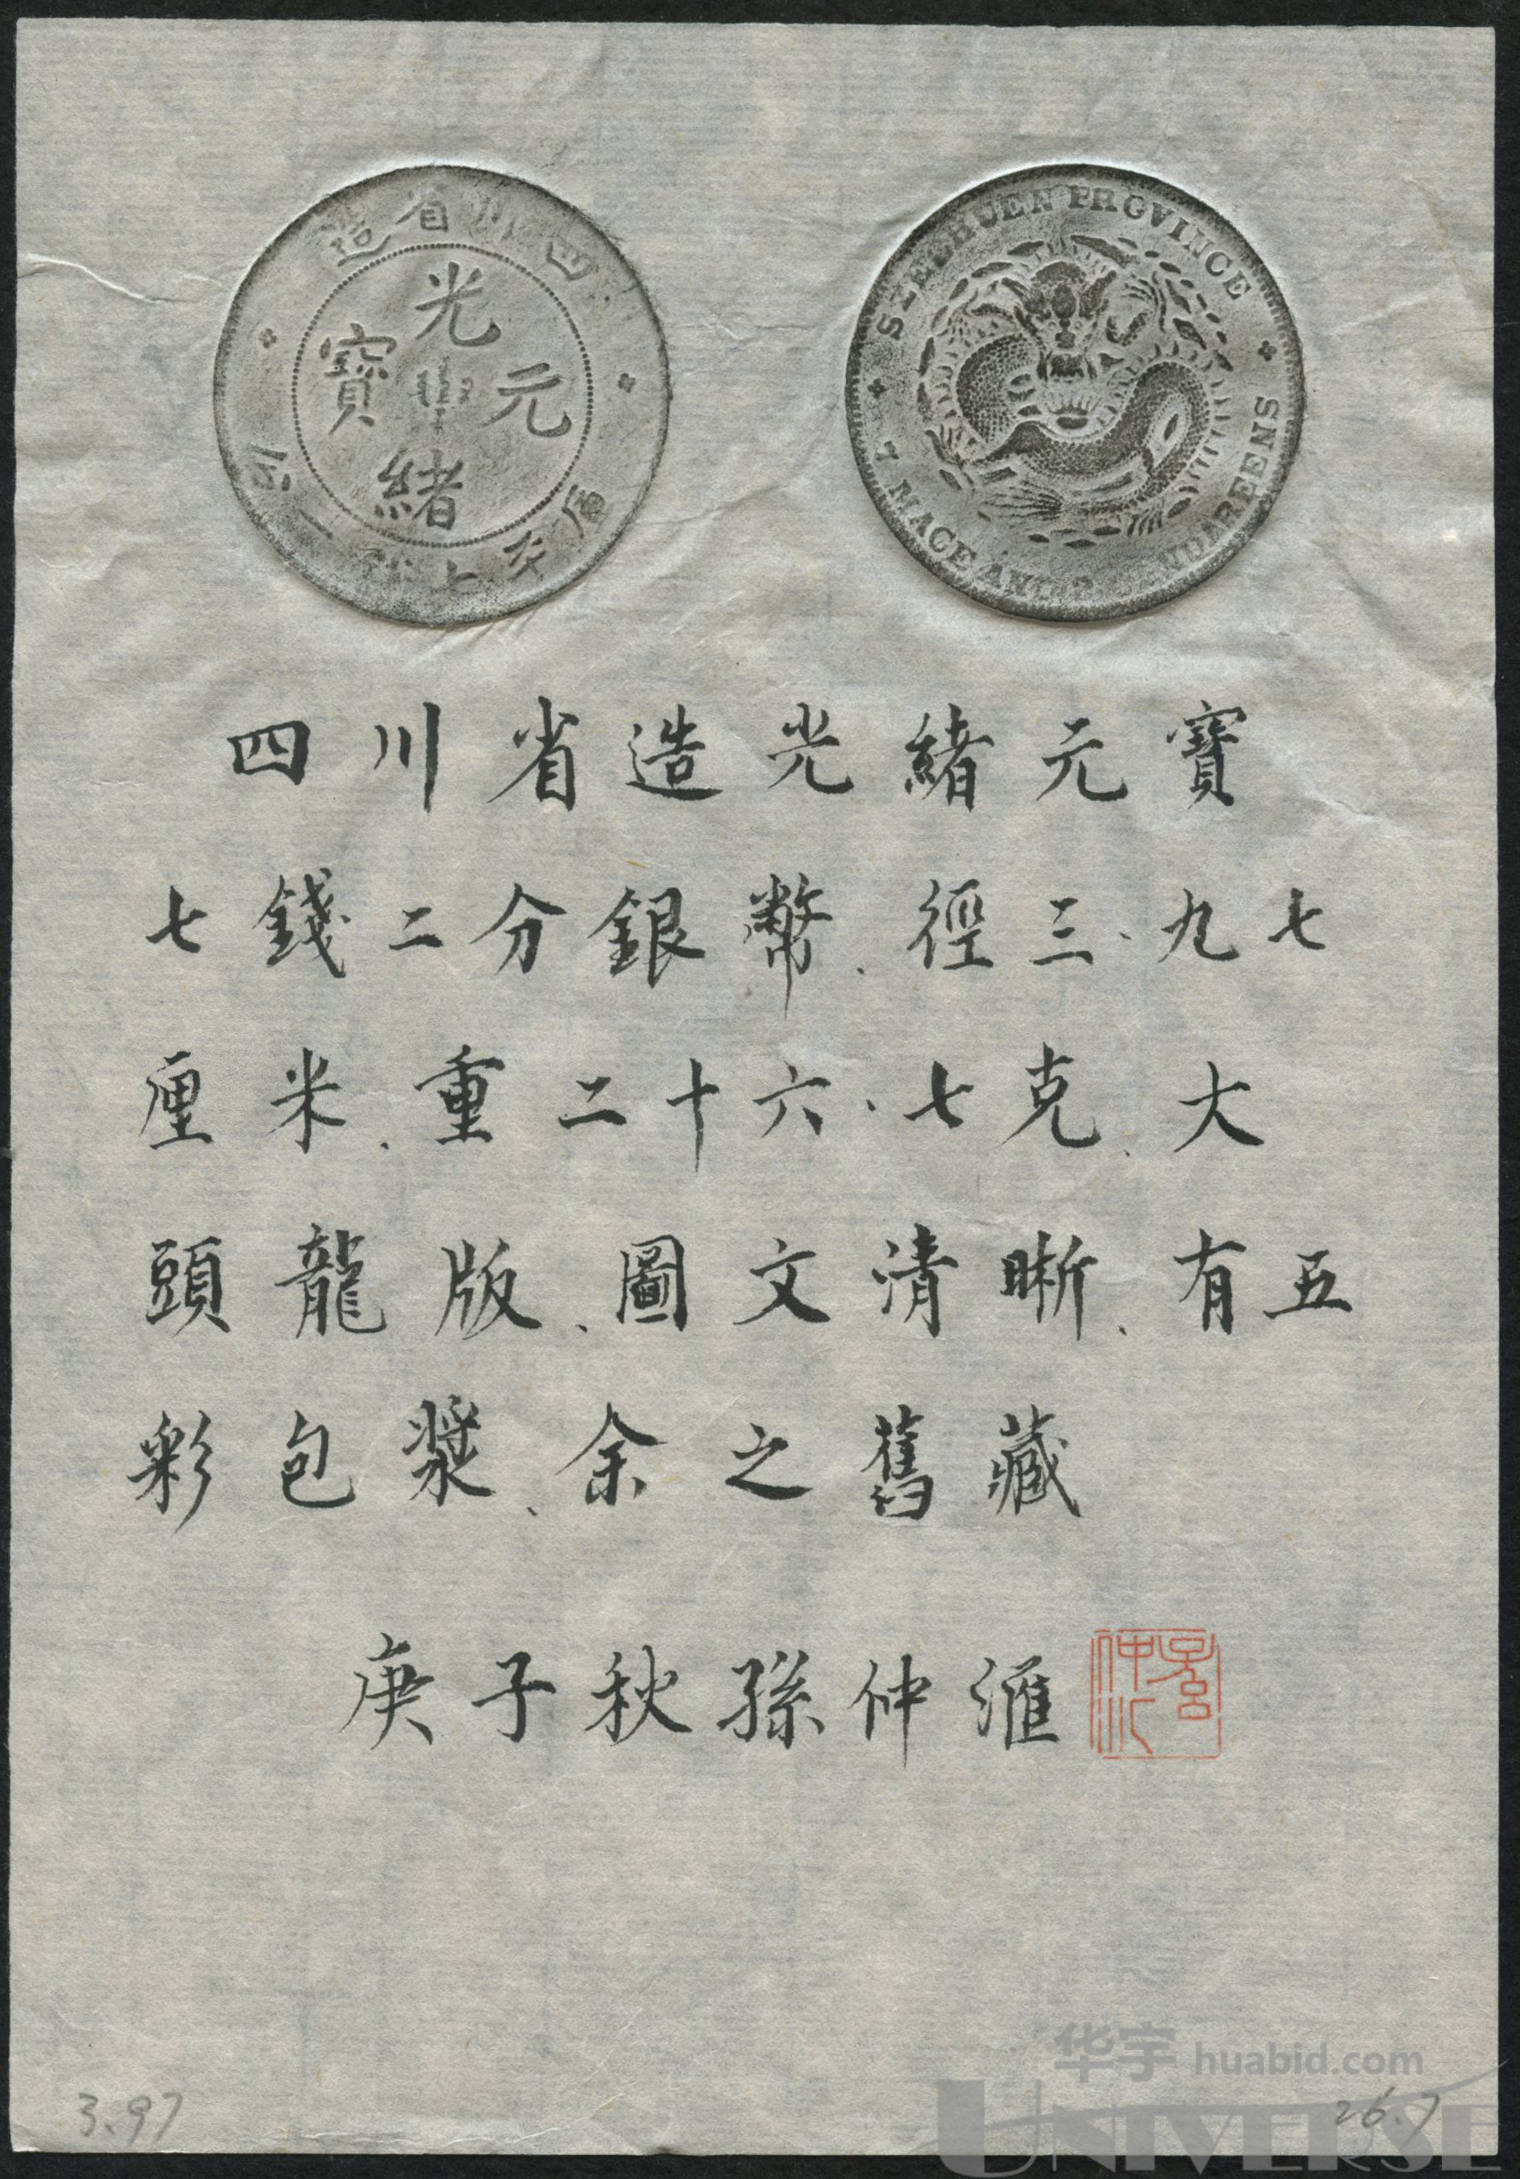 四川省造
光緒元寶
庫平七
S-ECHUEN PROVINCE
7 MACE AND 2 NDAREENS
四川省造光緒元寶
七錢二分銀幣、徑三.九七
厘米、重二十六.七克、大
頭龍版、圖文清晰、有五
彩包漿、余之舊藏
庚子秋孫仲滙
华宇 huabid.com
UNIVERSE
3.97
26.7